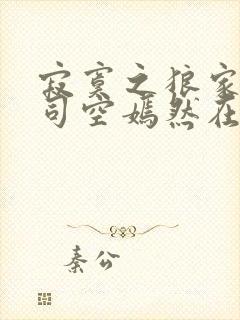 寂寞之狼家
司空嫣然在
秦公